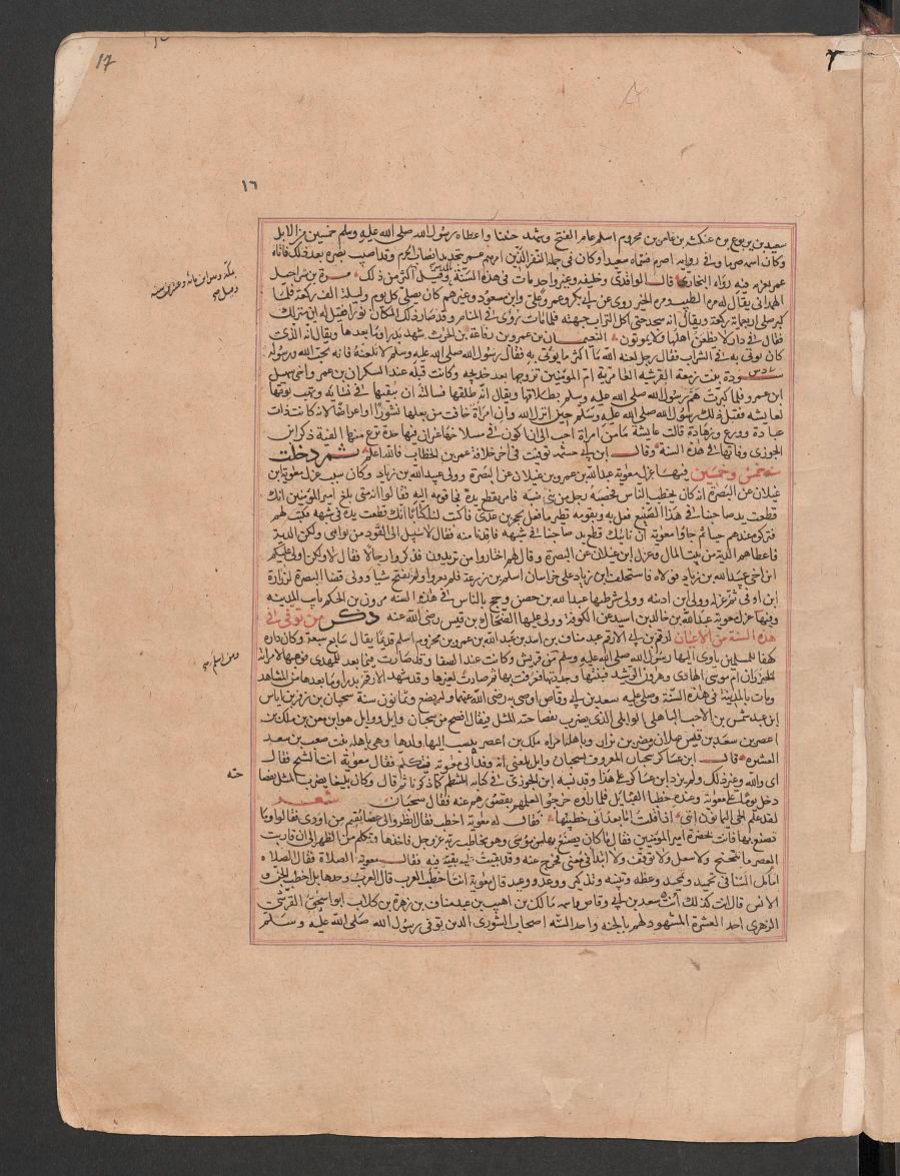 17
١٦
سعيد بن يربوع بن عنكثة بن عامر بن مخزوم اسلم عام الفتح وشهد حنينا واعطاه رسول الله صلى الله عليه وسلم خمسين من الابل
وكان اسمه صرما وفي رواية اصرم فسماه سعيدا وكان في جملة النفر الذين امرهم عمر بتجديد انصاب الحرم وقد اصيب بصره بعد ذلك فاتاه
عمر يعزيه فيه رواه البخاري قال الواقدي وخليفة وغير واحد مات في هذه السنة وقيل اكثر من ذلك مرة بن شراحيل
الهمداني يقال له مرة الطيب ومرة الخير روى عن ابي بكر وعمر وعلي وابن مسعود وغيرهم كان يصلي كل يوم وليلة الف ركعة فلما
كبر صلى اربعماية ركعة ويقال انه سجد حتى اكل التراب جبهته فلما مات رؤي في المنام وقد صار ذلك المكان نورا فقيل له اين منزلك
فقال في دار لا يظعن اهلها ولا يموتون النعيمان بن عمرو بن رفاعة بن الحرث شهد بدرا وما بعدها ويقال انه الذي
كان يوتى به في الشراب فقال رجل لعنه الله ما اكثر ما يوتى به فقال رسول الله صلى الله عليه وسلم لا تلعنه فانه يحب الله ورسوله
سودة بنت زمعة القرشية العامرية ام المومنين تزوجها بعد خديجة وكانت قبله عند السكران بن عمرو اخي سهيل
ابن عمرو فلما كبرت هم رسول الله صلى الله عليه وسلم بطلاقها ويقال انه طلقها فسالته ان يبقيها في نسايه وتهب يومها
لعايشة فقبل ذلك رسول الله صلى الله عليه وسلم حين انزل الله وان امراة خافت من بعلها نشوزا او اعراضا الاية كانت ذات
عبادة وورع وزهادة قالت عايشة ما من امراة احب الي ان اكون في مسلاخها غير ان فيها حدة تسرع منها الفيئة ذكر ابن
الجوزي وفاتها في هذه السنة وقال ابن ابي خيثمة توفيت في اخر خلافة عمر بن الخطاب فالله اعلم ثم دخلت
سنة خمس وخمسين فيها عزل معوية عبد الله بن عمرو بن غيلان عن البصرة وولى عبيد الله بن زياد وكان سبب عزل معوية ابن
غيلان عن البصرة انه كان يخطب الناس فحصبه رجل من بني ضبة فامر بقطع يده فجا قومه اليه فقالوا انه متى بلغ امير المومنين انك
قطعت يد صاحبنا في هذا الصنع فعل به وبقومه نظير ما فعل بحجر بن عدي فاكتب لنا كتابا انك قطعت يده في شبهة فكتب لهم
فتركوه عندهم حينا ثم جاوا معوية ان نايبك قطع يد صاحبنا في شبهة فاقدنا منه فقال لا سبيل الى القود من نوابي ولكن الدية
فاعطاهم الدية من بيت المال وعزل ابن غيلان عن البصرة وقال لهم اختاروا من تريدون فذكروا رجالا فقال لا ولكن اولي عليكم
ابن اخي عبيد الله بن زياد فولاه فاستخلف ابن زياد على خراسان اسلم بن زرعة فلم يغز ولم يفتح شيا وولى قضا البصرة لزرارة
ابن اوفى ثم عزله وولى ابن اذينة وولى شرطتها عبد الله بن حصن وحج بالناس في هذه السنة مرون بن الحكم نايب المدينة
وفيها عزل معوية عبد الله بن خالد بن اسيد عن الكوفة وولى عليها الضحاك بن قيس رضي الله عنه ذكر من توفي في
هذه السنة من الاعيان ارقم بن ابي الارقم عبد مناف بن اسد بن عبد الله بن عمرو بن مخزوم اسلم قديما يقال سابع سبعة وكان داره
كهفا للمسلمين ياوي اليها رسول الله صلى الله عليه وسلم من قريش وكانت عند الصفا وقد صارت فيما بعد للمهدي فوهبها لامراته
الخيزران ام موسى الهادي وهرون الرشيد فبنتها وجددتها فعرفت بها ثم صارت لغيرها وقد شهد الارقم بدرا وما بعدها من المشاهد
ومات بالمدينة في هذه السنة وصلى عليه سعد بن ابي وقاص اوصى به رضي الله عنهما وله بضع وثمانون سنة سحبان بن زفر بن اياس
ابن عبد شمس بن الاحب الباهلي الوايلي الذي يضرب بفصاحته المثل فيقال افصح من سحبان وايل ووايل هو ابن معن بن ملك بن
اعصر بن سعد بن قيس عيلان بن مضر بن نزار وباهلة امراة ملك بن اعصر ينسب اليها ولدها وهي باهلة بنت صعب بن سعد
العشيرة قال ابن عساكر سحبان المعروف بسحبان وايل بلغني انه وفد الى معوية فتكلم فقال معوية انت الشيخ فقال
اي والله وغير ذلك ولم يزد ابن عساكر على هذا وقد نسبه ابن الجوزي في كتابه المنتظم كما ذكرنا ثم قال وكان بليغا يضرب المثل بفصا
دخل يوما على معوية وعنده خطبا القبايل فلما راوه خرجوا لعلمهم بقصورهم عنه فقال سحبان شعر
لقد علم الحي اليمانون انني اذا قلت اما بعد اني خطيبها فقال له معوية اخطب فقال انظروا لي عصا تقيم من اودي فقالوا وما
تصنع بها وانت بحضرة امير المومنين فقال ما كان يصنع بها موسى وهو يخاطب ربه عز وجل فاخذها وتكلم من الظهر الى ان قاربت
العصر ما تنحنح ولا سعل ولا توقف ولا ابتدا في معنى فخرج عنه وقد بقيت عليه بقية فيه فقال معوية الصلاة فقال الصلاة
امامك السنا في تحميد وتمجيد وعظة وتنبيه وتذكير ووعد ووعيد قال معوية انت اخطب العرب قال العرب وحدها بل اخطب الجن و
الانس قال انت كذلك سعد بن ابي وقاص واسمه مالك بن اهيب بن عبد مناف بن زهرة بن كلاب ابو اسحق القرشي
الزهري احد العشرة المشهود لهم بالجنة واحد الستة اصحاب الشورى الذين توفي رسول الله صلى الله عليه وسلم
حته